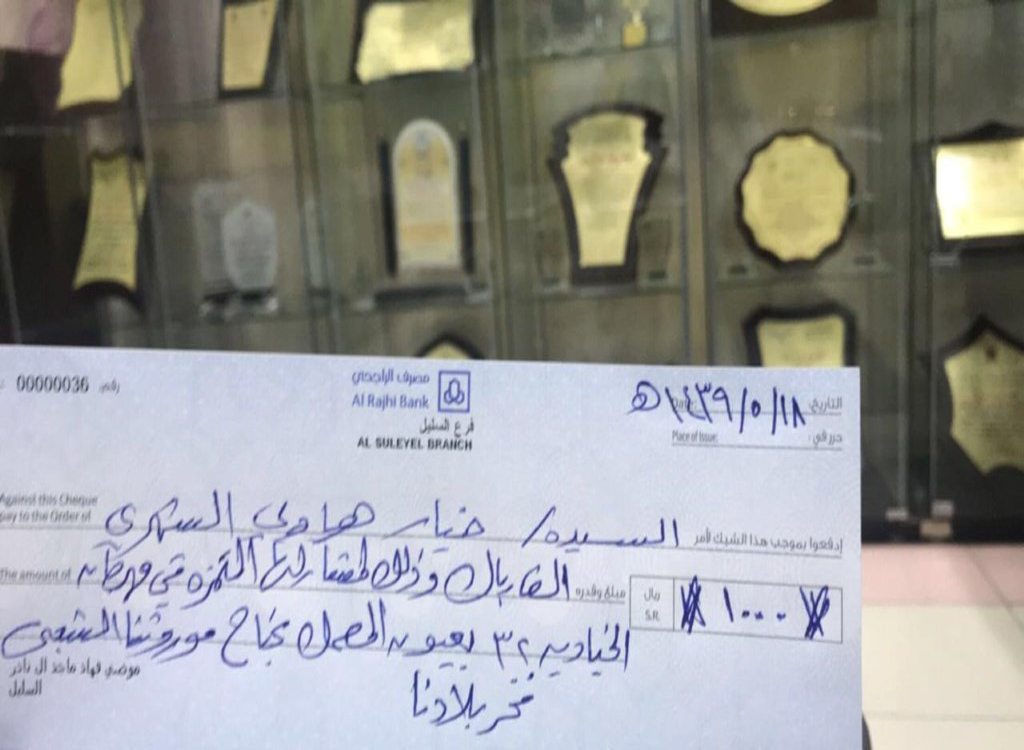 00000036 رقم
مصرف الراجحي
Al Rajhi Bank
فرع السليل
AL SULEYEL BRANCH
التاريخ Date: ١٤٣٩/٥/١٨هـ
حرر في: Place of Issue:
Against this Cheque
pay to the Order of
إدفعوا بموجب هذا الشيك لأمر السيده/ هاوي
The amount of مبلغ وقدره الف ريال وذلك في
ريال
S.R. ١٠٠٠
٣٢ بعيون بنجاح موروثنا الشعبي
فخر بلادنا
موضي فهاد ماجد ال نادر
السليل